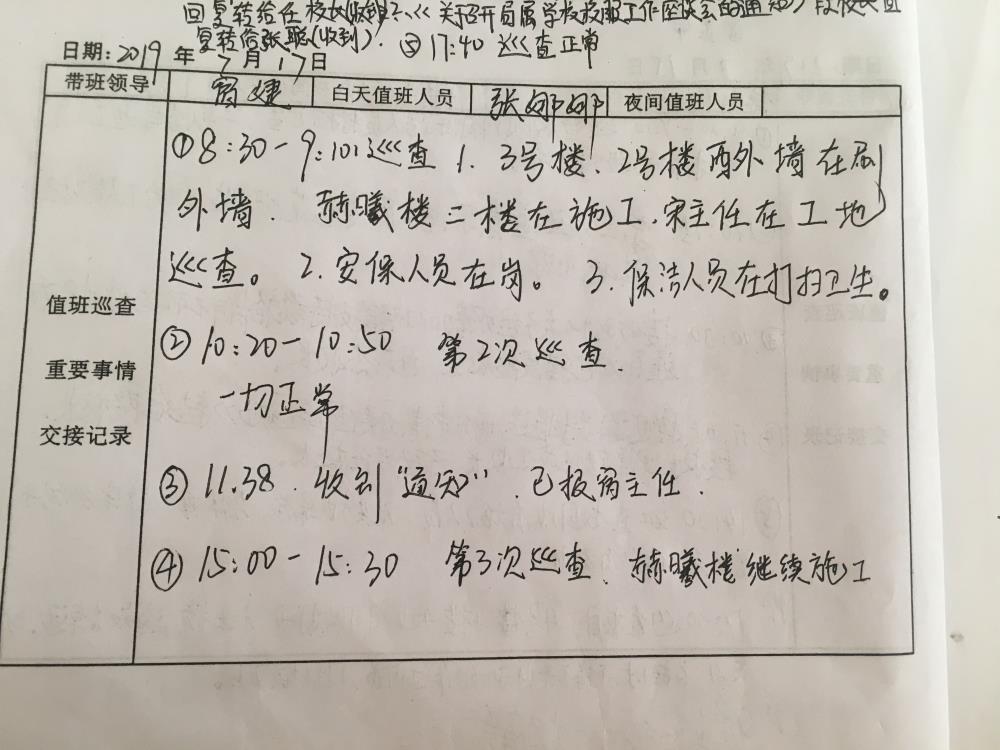 回复转给任校长(收到)2、《关于召开局属学校校服工作座谈会的通知》段校长回
复转给张聪(收到). ⑤17:40 巡查正常
日期:2019年7月17日
带班领导 宿婕 白天值班人员 张娜娜 夜间值班人员
①8:30-9:10:巡查 1. 3号楼、2号楼西外墙在刷
外墙. 赫曦楼二楼在施工.宋主任在工地
巡查。 2.安保人员在岗。 3.保洁人员在打扫卫生。
值班巡查
②10:20-10:50 第2次巡查.
重要事情
一切正常
交接记录
③11.38.收到“通知”.已报宿主任.
④15:00-15:30 第3次巡查.赫曦楼继续施工